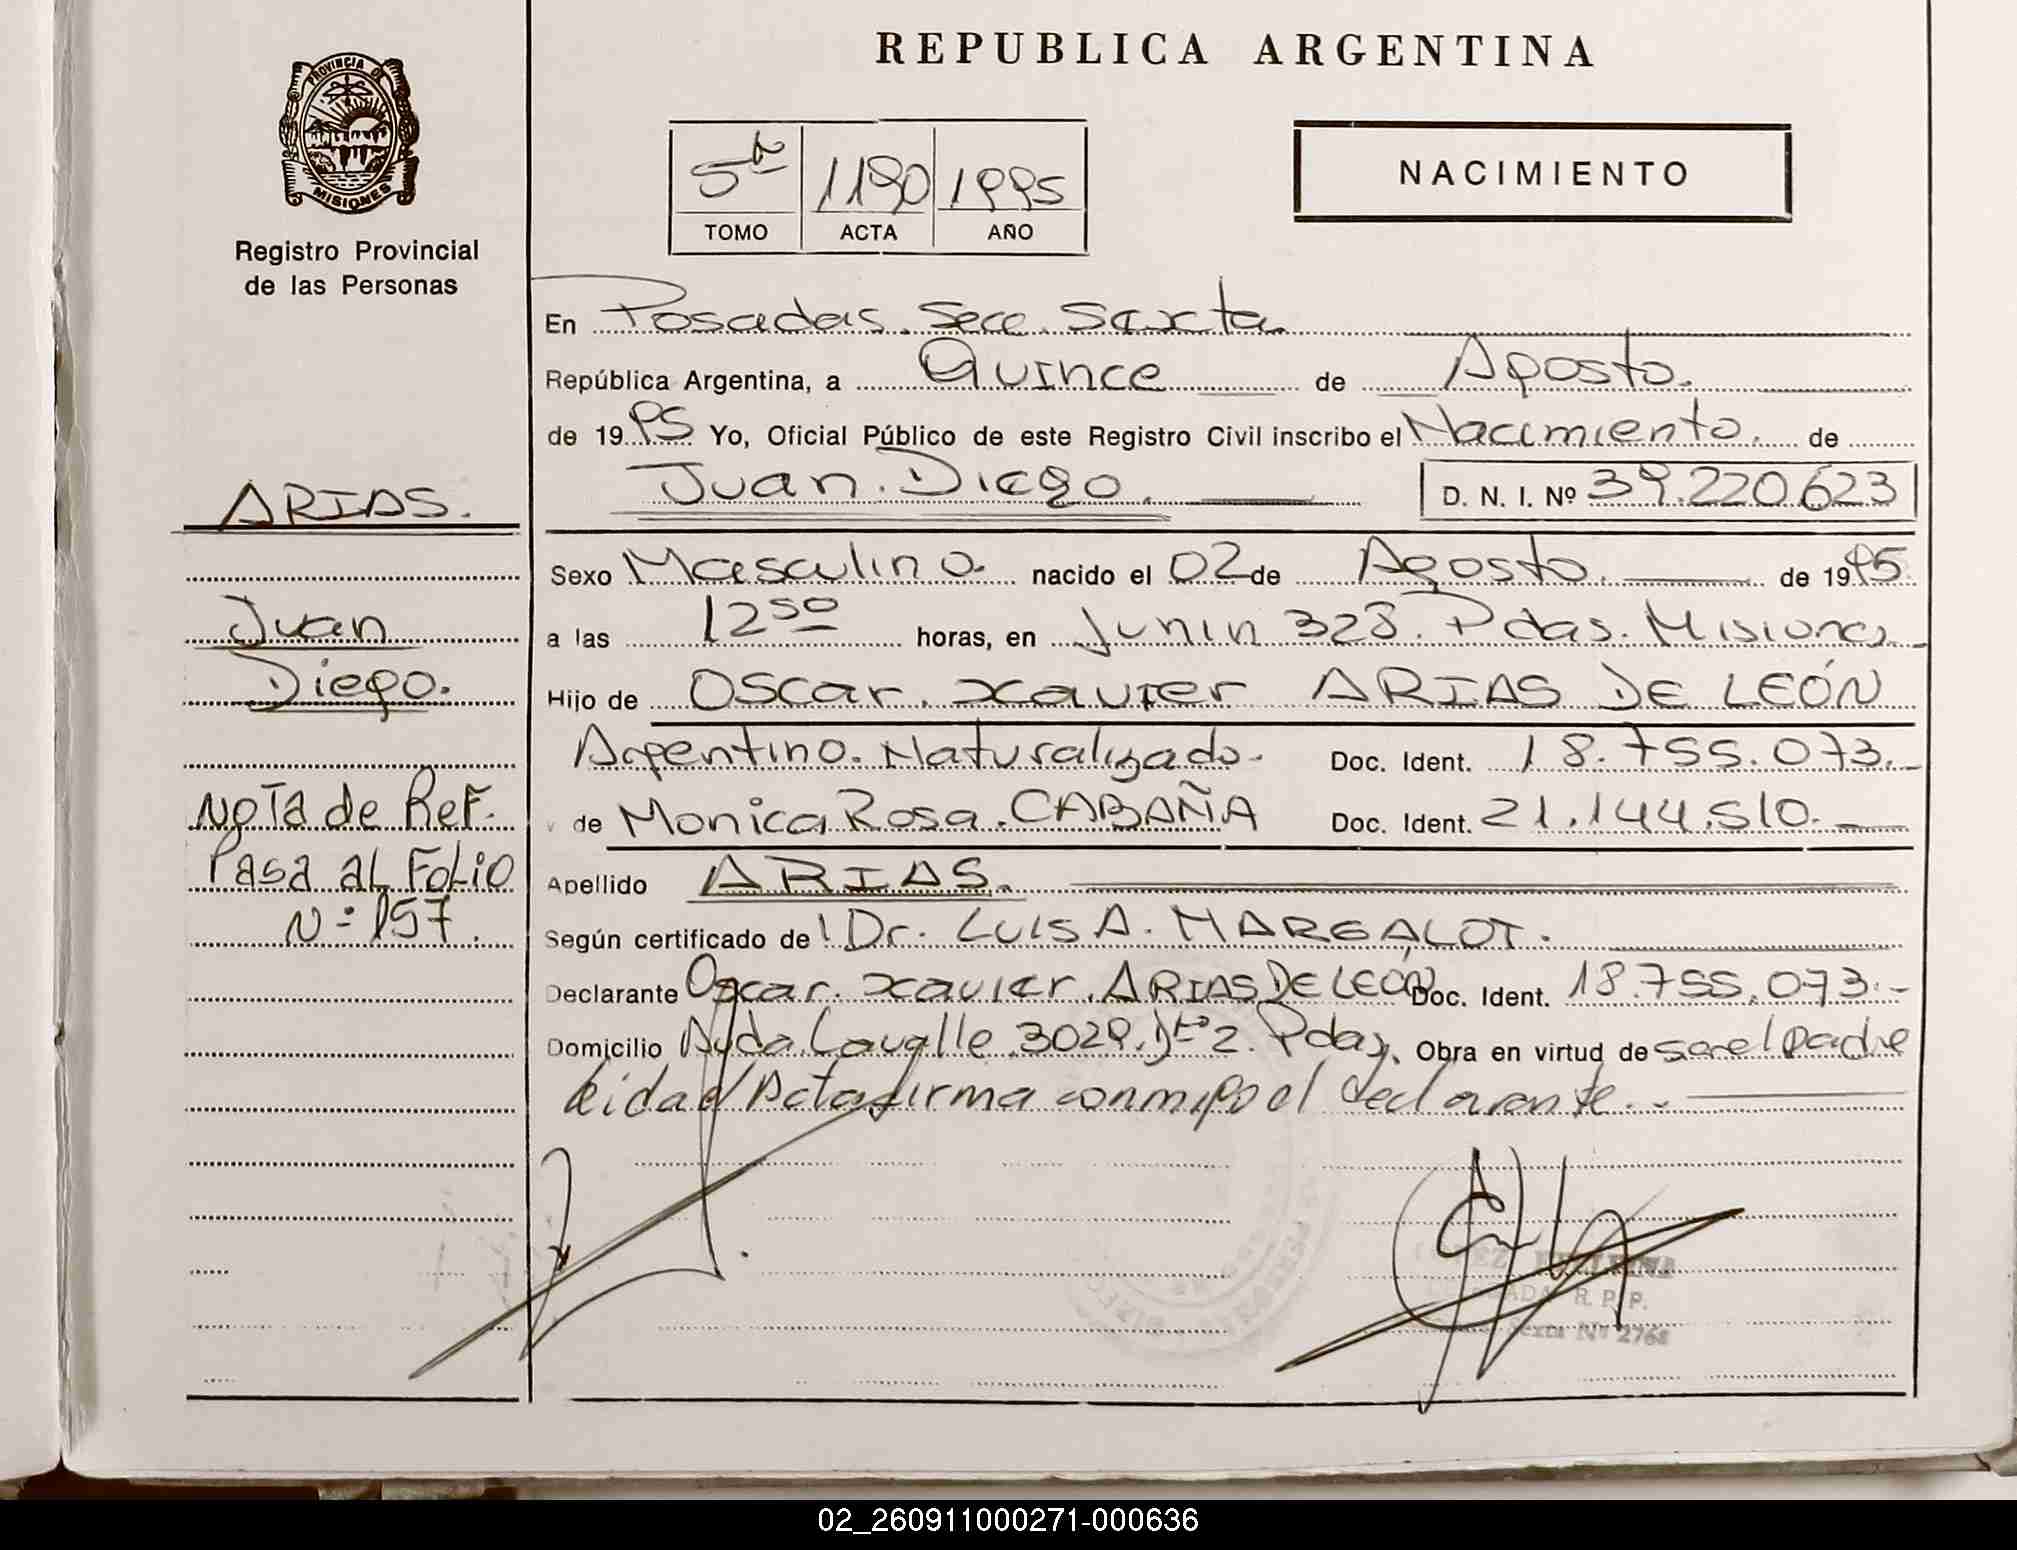 REPUBLICA ARGENTINA
PROVINCIA DE
MISIONES
Registro Provincial
de las Personas
5to 1190 1995
TOMO ACTA AÑO
NACIMIENTO
En Posadas. Secc. Sexta.
República Argentina, a Quince de Agosto.
de 1995 Yo, Oficial Público de este Registro Civil inscribo el Nacimiento. de
Juan. Diego. D. N. I. Nº 39.220.623
ARIAS.
Juan
Diego.
Nota de Ref.
Pasa al Folio
Nº 157.
Sexo Masculino. nacido el 02 de Agosto. de 1995.
a las 12 50 horas, en Junin 328. Pdas. Misiones
Hijo de Oscar. Xavier ARIAS DE LEÓN
Argentino. Naturalizado. Doc. Ident. 18.755.073.
y de Monica Rosa. CABAÑA Doc. Ident. 21.144.510.
Apellido ARIAS.
Según certificado del Dr. LUIS A. MARGALOT.
Declarante Oscar. Xavier. ARIAS DE LEÓN Doc. Ident. 18.755.073.-
Domicilio Avda. Lavalle 3029. Dto 2. Pdas. Obra en virtud de ser el padre
leida el Acta firma conmigo el declarante..
R. P. P.
Sexta Nº 2768
02_260911000271-000636